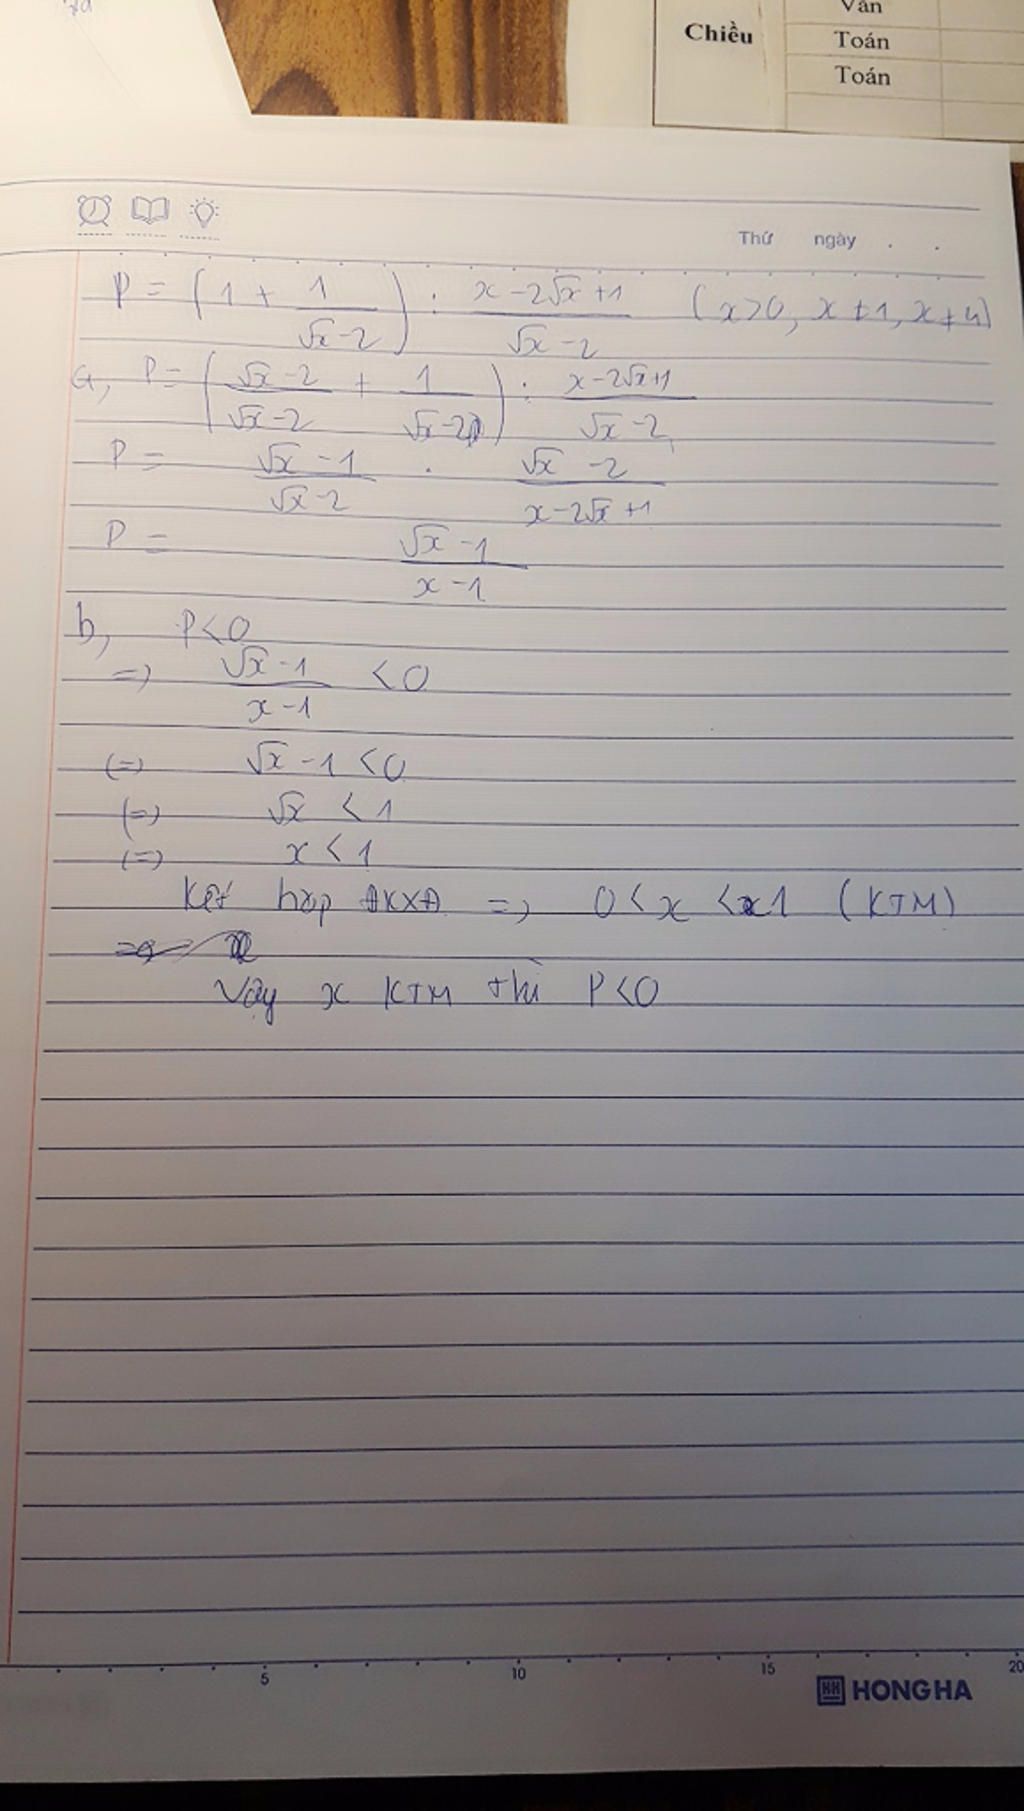 Văn
Chiều
Toán
Toán
Thứ ngày . .
P = (1 + 1/(√x-2)) : (x-2√x+1)/(√x-2) (x>0, x≠1, x≠4)
a, P = ((√x-2)/(√x-2) + 1/(√x-2)) : (x-2√x+1)/(√x-2)
P = (√x-1)/(√x-2) . (√x-2)/(x-2√x+1)
P = (√x-1)/(x-1)
b, P<0
=> (√x-1)/(x-1) <0
(=) √x-1 <0
(=) √x < 1
(=) x < 1
Kết hợp ĐKXĐ => 0<x<1 (KTM)
Vậy x KTM thì P<0
5 10 15 20
HONG HA